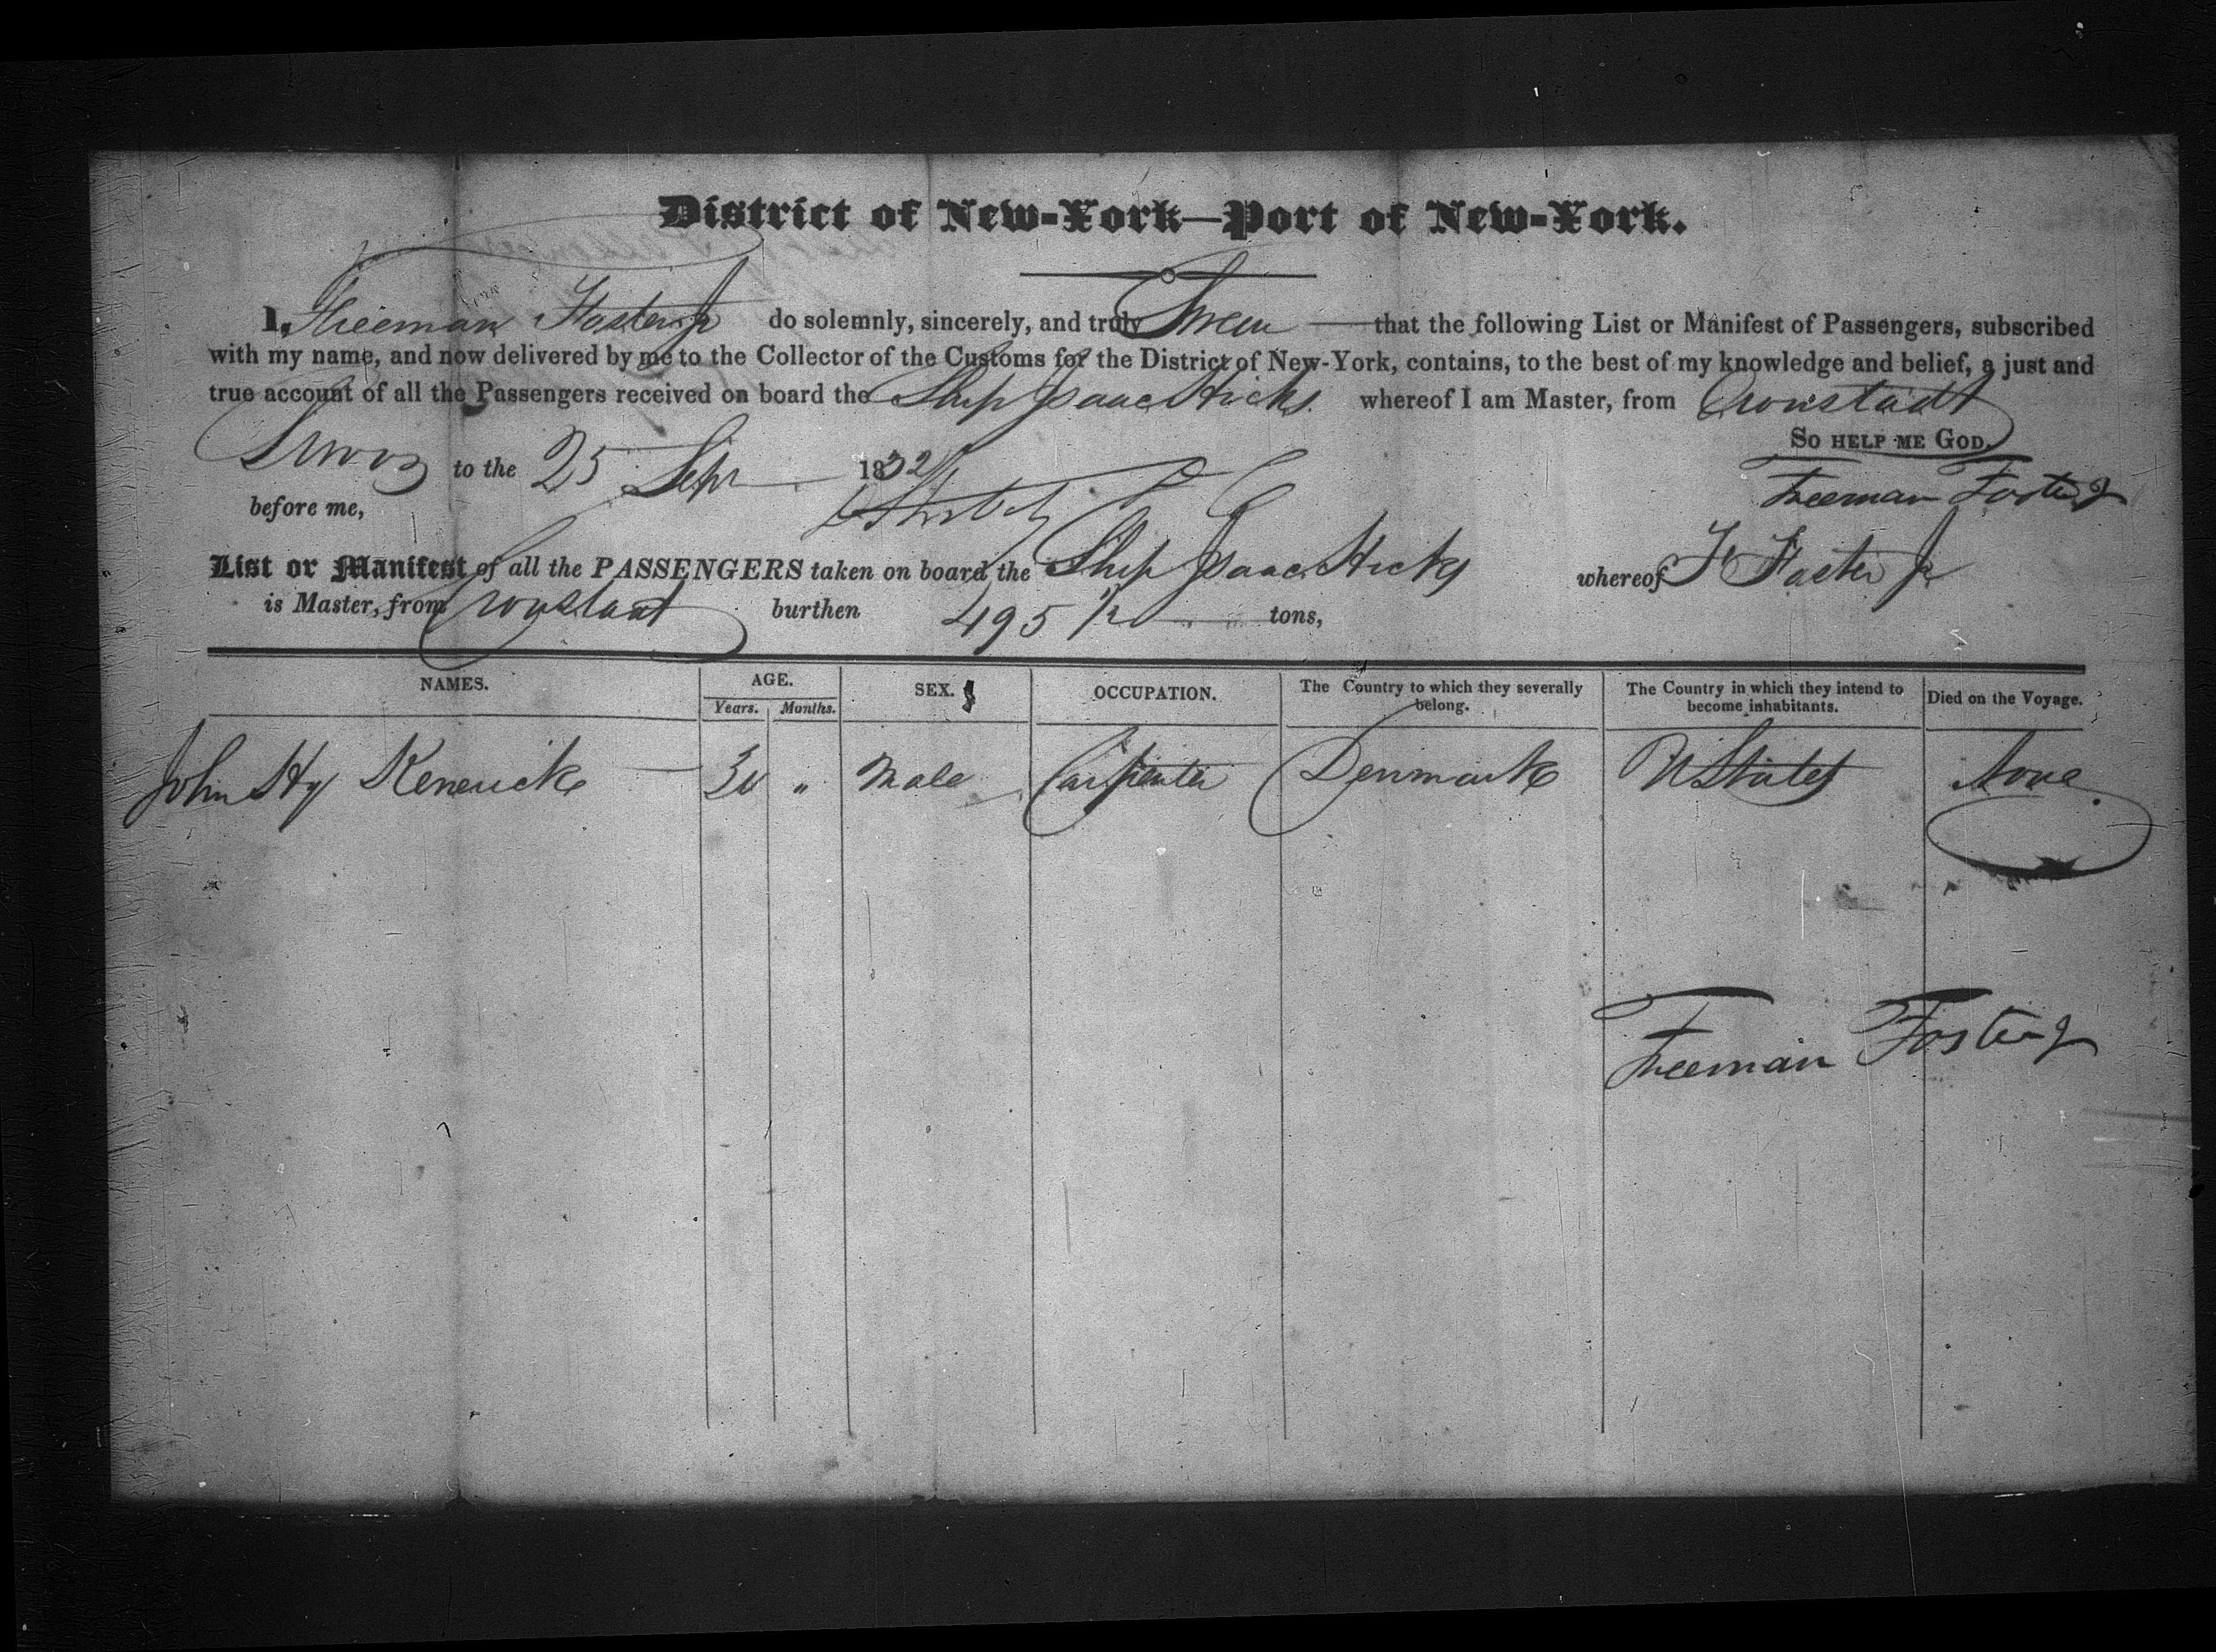 District of New-York—Port of New-York.
I, Freeman Foster Jr do solemnly, sincerely, and truly Swear that the following List or Manifest of Passengers, subscribed
with my name, and now delivered by me to the Collector of the Customs for the District of New-York, contains, to the best of my knowledge and belief, a just and
true account of all the Passengers received on board the Ship Isaac Hicks. whereof I am Master, from Cronstadt
So HELP ME GOD.
Sworn to the 25 Sepr 1832
Freeman Foster Jr
before me,
List or Manifest of all the PASSENGERS taken on board the Ship Isaac Hicks whereof F Foster Jr
is Master, from Cronstadt burthen 495 1/2 tons,
NAMES. AGE. SEX. OCCUPATION. The Country to which they severally belong. The Country in which they intend to become inhabitants. Died on the Voyage.
Years. Months.
John Hy " Male Carpenter Denmark U States None
Freeman Foster Jr